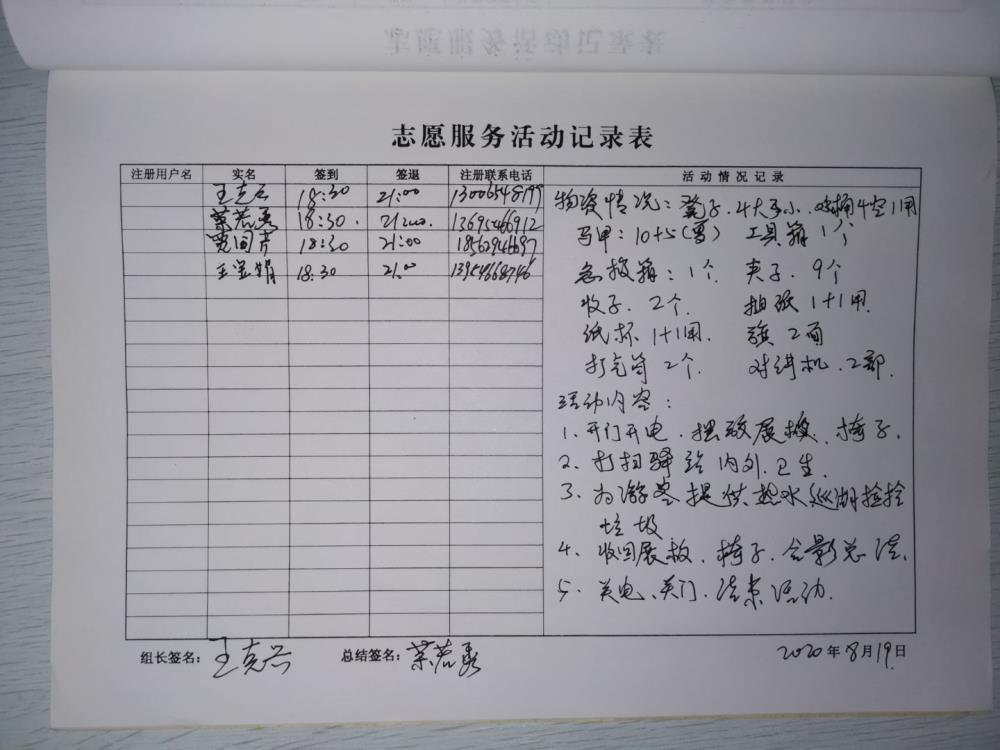 志愿服务活动记录表
注册用户名 实名 签到 签退 注册联系电话 活动情况记录
王克兴 18:30 21:00
18:30. 21:00. 13695466912
18:30 21:00 18562946697
18:30 21:00 13954668746
物资情况：凳子.4大5小. 水桶4空1用
马甲：10+5(雪) 工具箱1个
急救箱：1个 夹子.9个
牧子.2个. 抽纸1+1用.
纸杯1+1用. 旗2面
打气筒2个. 对讲机.2部.
活动内容：
1、开门开电.摆放展板、椅子.
2、打扫驿站内外卫生.
3、为游客提供热水巡湖捡拾
垃圾
4、收回展板、椅子、合影总结.
5、关电、关门、结束活动.
组长签名：王克兴 总结签名：
2020年8月19日